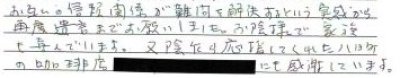 お互いの信頼関係が難問を解決するという実感から
再度遺言までお願いしました。お陰様で家族
も喜んでいます。又陰乍ら応援してくれた八日町
の珈琲店 にも感謝しています。